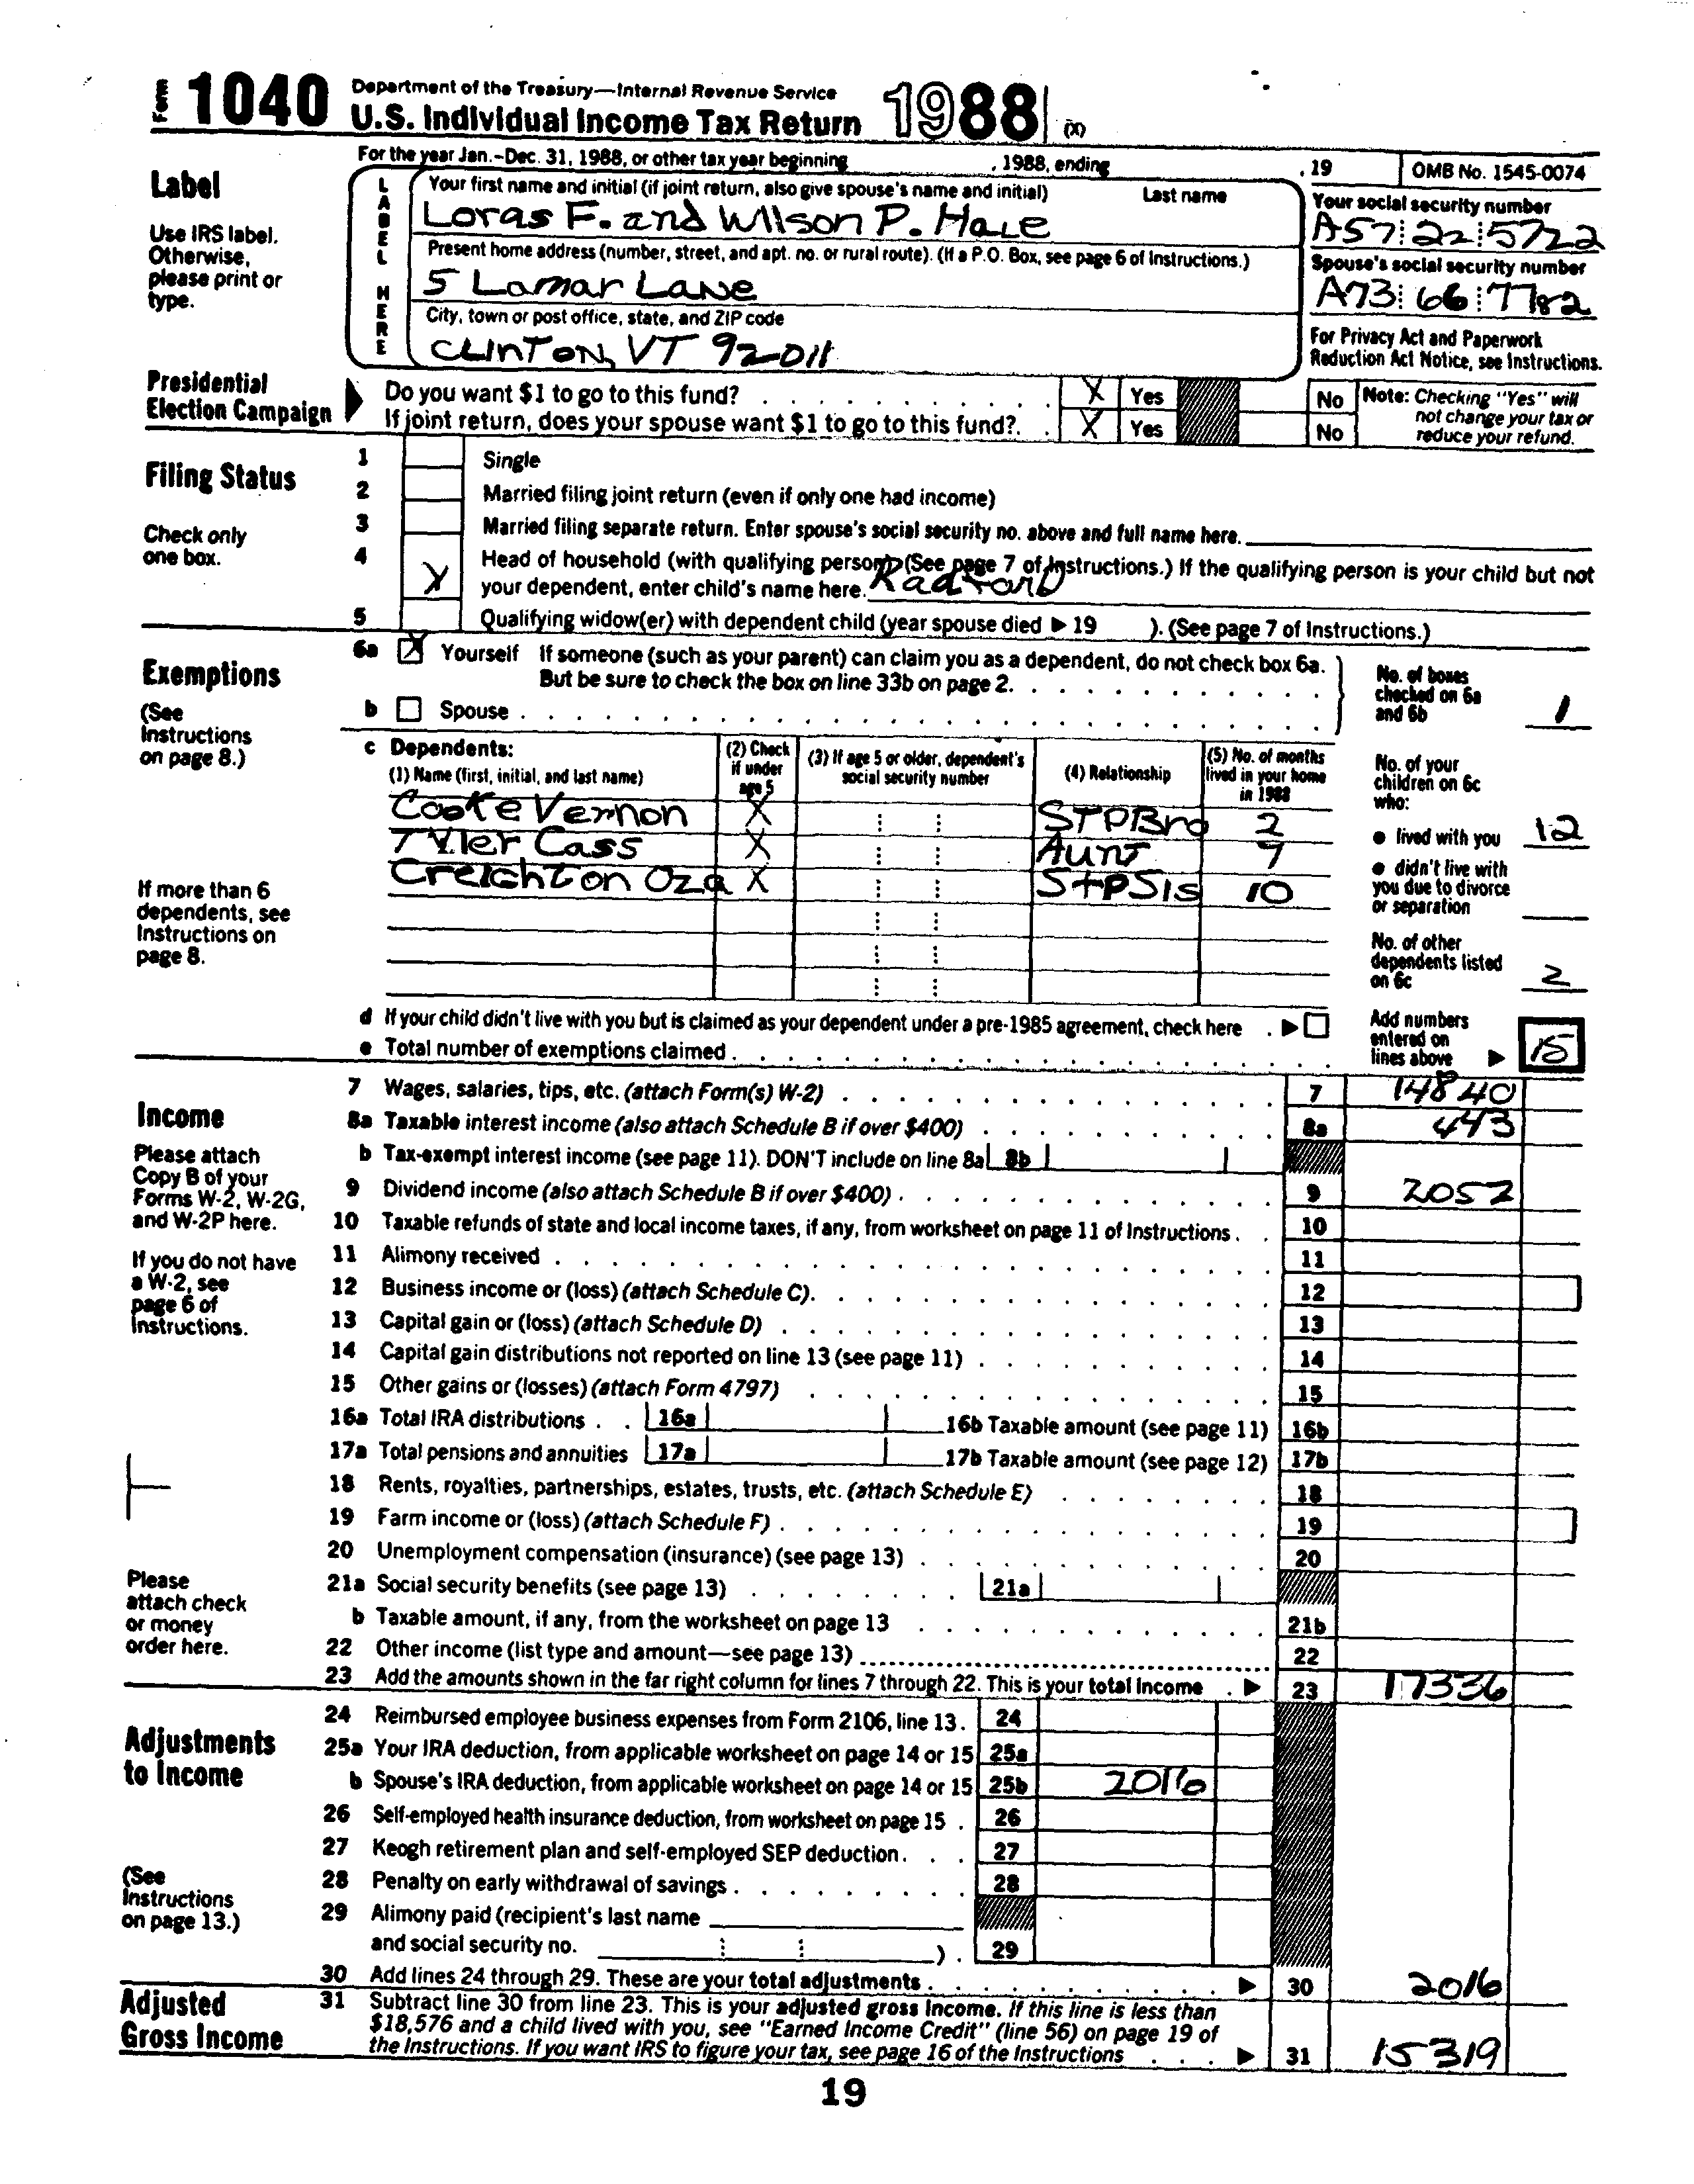 Form 1040 Department of the Treasury—Internal Revenue Service
U.S. Individual Income Tax Return 1988 (X)
For the year Jan.-Dec. 31, 1988, or other tax year beginning , 1988, ending , 19 OMB No. 1545-0074
Label
Use IRS label. Otherwise, please print or type.
LABEL HERE
Your first name and initial (if joint return, also give spouse's name and initial) Last name
Loras F. and Wilson P. Hale
Your social security number
A57 22 5722
Present home address (number, street, and apt. no. or rural route). (If a P.O. Box, see page 6 of Instructions.)
5 Lamar Lane
Spouse's social security number
A73 66 7782
City, town or post office, state, and ZIP code
CLINTON, VT 92011
For Privacy Act and Paperwork Reduction Act Notice, see Instructions.
Presidential Election Campaign
Do you want $1 to go to this fund? X Yes No
If joint return, does your spouse want $1 to go to this fund? X Yes No
Note: Checking "Yes" will not change your tax or reduce your refund.
Filing Status
Check only one box.
1 Single
2 Married filing joint return (even if only one had income)
3 Married filing separate return. Enter spouse's social security no. above and full name here.
4 X Head of household (with qualifying person). (See page 7 of Instructions.) If the qualifying person is your child but not
your dependent, enter child's name here. Radford
5 Qualifying widow(er) with dependent child (year spouse died ▶ 19 ). (See page 7 of Instructions.)
Exemptions
(See Instructions on page 8.)
6a X Yourself If someone (such as your parent) can claim you as a dependent, do not check box 6a.
But be sure to check the box on line 33b on page 2.
b Spouse
No. of boxes checked on 6a and 6b 1
c Dependents:
(1) Name (first, initial, and last name) (2) Check if under age 5 (3) If age 5 or older, dependent's social security number (4) Relationship (5) No. of months lived in your home in 1988
Cooke Vernon X STPBro 2
Tyler Cass X Aunt 7
Creighton Oza X StpSis 10
No. of your children on 6c who:
● lived with you 12
● didn't live with you due to divorce or separation
No. of other dependents listed on 6c 2
If more than 6 dependents, see Instructions on page 8.
d If your child didn't live with you but is claimed as your dependent under a pre-1985 agreement, check here ▶
e Total number of exemptions claimed
Add numbers entered on lines above ▶ 15
Income
Please attach Copy B of your Forms W-2, W-2G, and W-2P here.
If you do not have a W-2, see page 6 of Instructions.
7 Wages, salaries, tips, etc. (attach Form(s) W-2) 7 14840
8a Taxable interest income (also attach Schedule B if over $400) 8a 443
b Tax-exempt interest income (see page 11). DON'T include on line 8a 8b
9 Dividend income (also attach Schedule B if over $400) 9 2052
10 Taxable refunds of state and local income taxes, if any, from worksheet on page 11 of Instructions 10
11 Alimony received 11
12 Business income or (loss) (attach Schedule C) 12
13 Capital gain or (loss) (attach Schedule D) 13
14 Capital gain distributions not reported on line 13 (see page 11) 14
15 Other gains or (losses) (attach Form 4797) 15
16a Total IRA distributions 16a 16b Taxable amount (see page 11) 16b
17a Total pensions and annuities 17a 17b Taxable amount (see page 12) 17b
18 Rents, royalties, partnerships, estates, trusts, etc. (attach Schedule E) 18
19 Farm income or (loss) (attach Schedule F) 19
20 Unemployment compensation (insurance) (see page 13) 20
21a Social security benefits (see page 13) 21a
b Taxable amount, if any, from the worksheet on page 13 21b
Please attach check or money order here.
22 Other income (list type and amount—see page 13) 22
23 Add the amounts shown in the far right column for lines 7 through 22. This is your total income ▶ 23 17336
Adjustments to Income
(See Instructions on page 13.)
24 Reimbursed employee business expenses from Form 2106, line 13. 24
25a Your IRA deduction, from applicable worksheet on page 14 or 15 25a
b Spouse's IRA deduction, from applicable worksheet on page 14 or 15 25b 2016
26 Self-employed health insurance deduction, from worksheet on page 15 26
27 Keogh retirement plan and self-employed SEP deduction 27
28 Penalty on early withdrawal of savings 28
29 Alimony paid (recipient's last name
and social security no. ). 29
30 Add lines 24 through 29. These are your total adjustments ▶ 30 2016
Adjusted Gross Income
31 Subtract line 30 from line 23. This is your adjusted gross income. If this line is less than
$18,576 and a child lived with you, see "Earned Income Credit" (line 56) on page 19 of
the Instructions. If you want IRS to figure your tax, see page 16 of the Instructions ▶ 31 15319
19